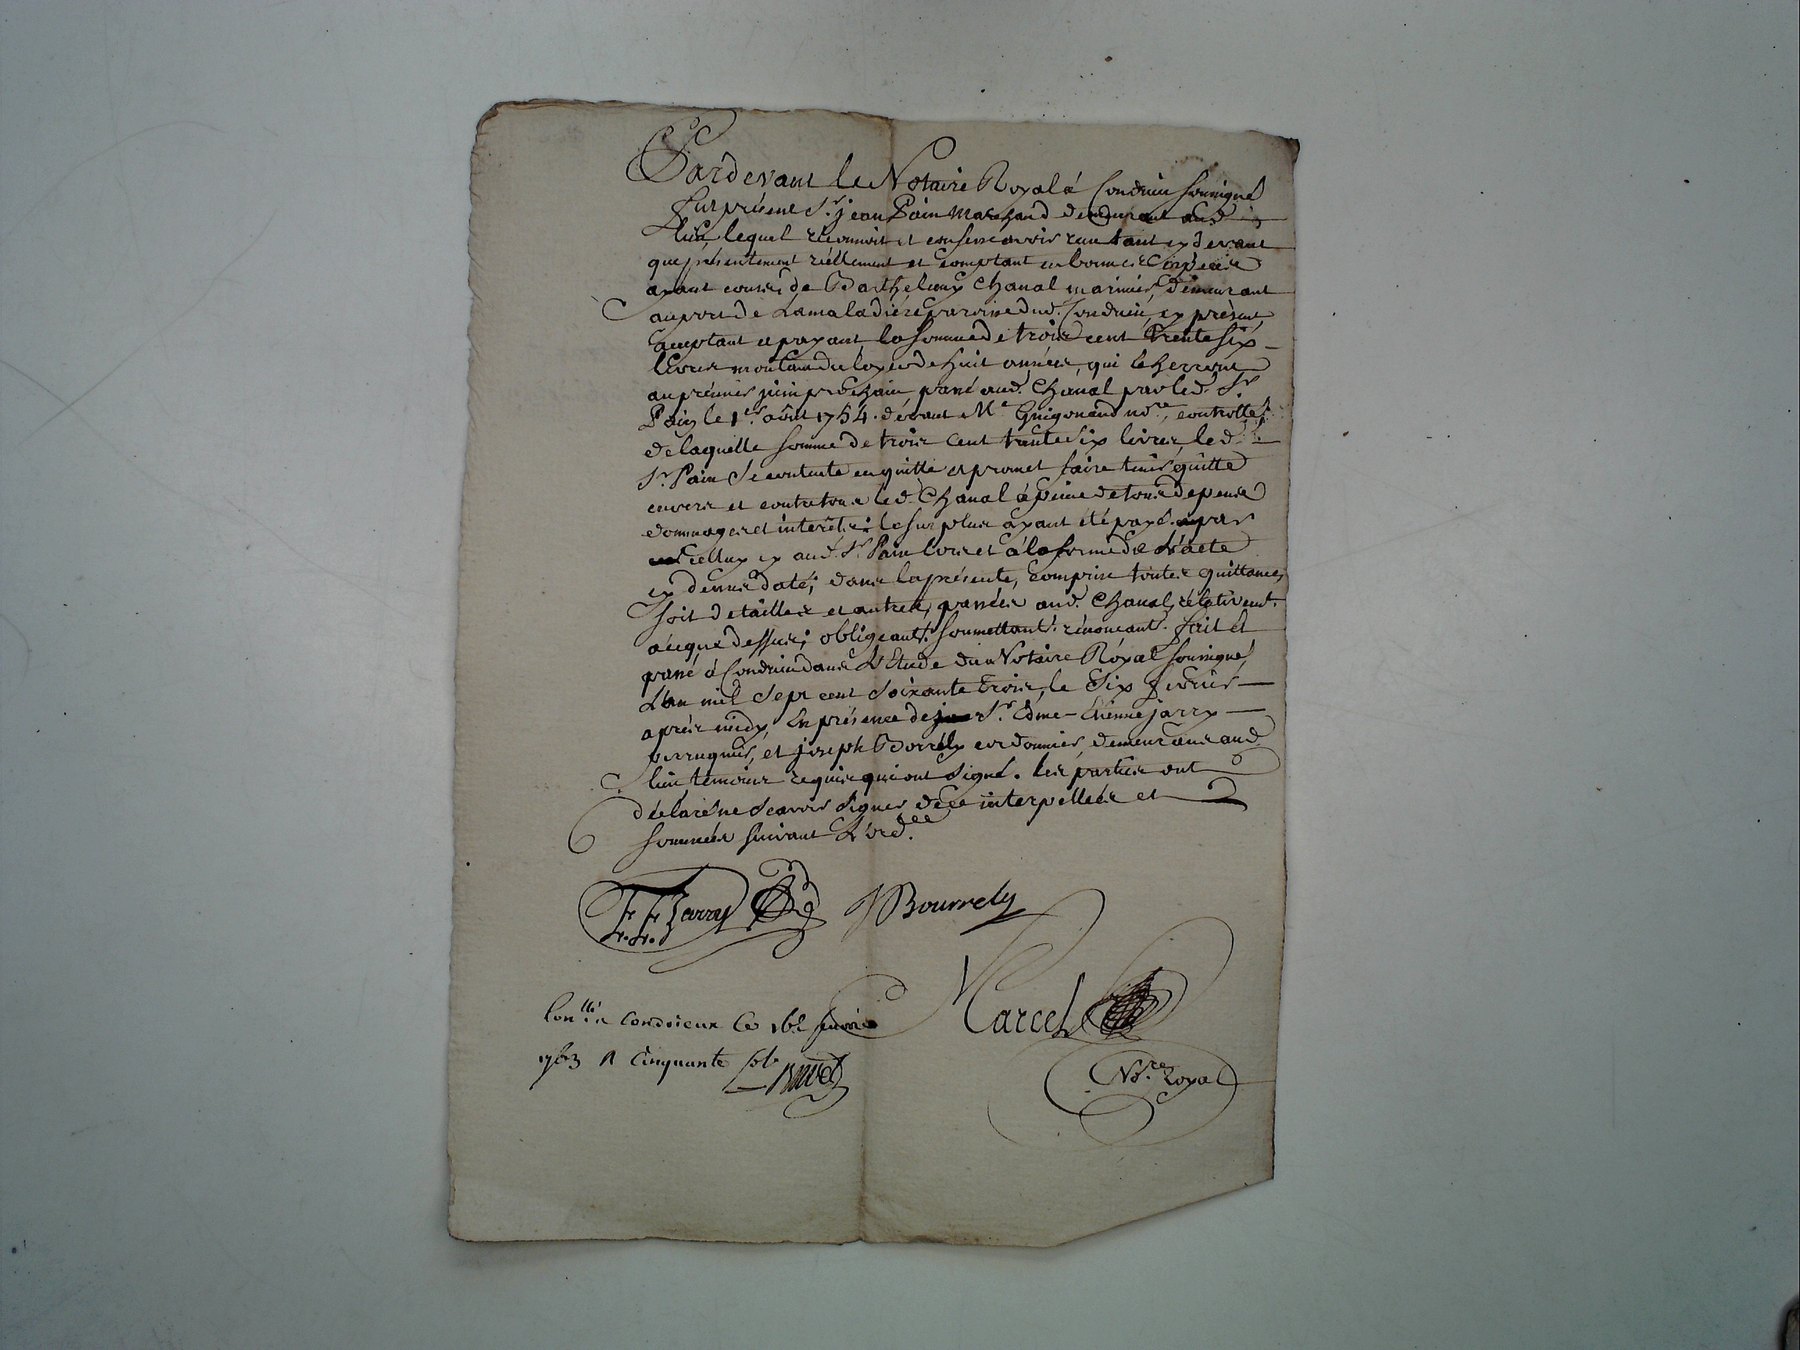 Pardevant le Notaire Royal á Condrieu soussigné
fut présent Sr. jean Pain Marchand demeurant aud.
lieu lequel reconnoit et confesse avoir reçu tant cy devant
que présentement réellement et comptant en bonnes Espéces
ayant cours, de Barthelemy Chanal marinier, demeurant
au port de Lamaladiére paroisse dud. Condrieu, cy présent
acceptant et payant, la somme de trois cent trente six
livres montant du loyer de huit années, qui écherront
au prémier juin prochain passé aud. Chanal par led. Sr.
Pain le 1er. aôut 1754. devant Me. Guigonand nore. controllé
de laquelle somme de trois cent trente six livres led.
Sr. Pain se contente en quitte et promet faire tenir quitte
envers et contre tous led. Chanal à peine de tous dépens
dommages et intérêts; le surplus ayant été payé par
icelluy cy aud. Sr. Pain lors et á la forme de L'acte
cy dessus daté; dans la présente, comprise toutes quittances,
soit détaillées et autres, passées aud. Chanal, rélativemt.
á ce que dessus; obligeant. soumettant. rénonceant. fait et
passé á Condrieu dans L'Etude du Notaire Royal soussigné,
L'an mil sept cent soixante trois, le six fevrier
aprés midy, En présence de Sr. Edme Etienne jarry
perruquier, et joseph Borrély cordonnier, demeurans aud.
lieu témoins requis qui ont signé. les parties ont
déclaré ne scavoir signer de ce interpellées et
sommées suivant L'ordce.
E. E. Jarry JBourrely
Marcel
Nore. royal
Conllé. a Condrieux Ce 16e fevrier
1763 R Cinquante sols